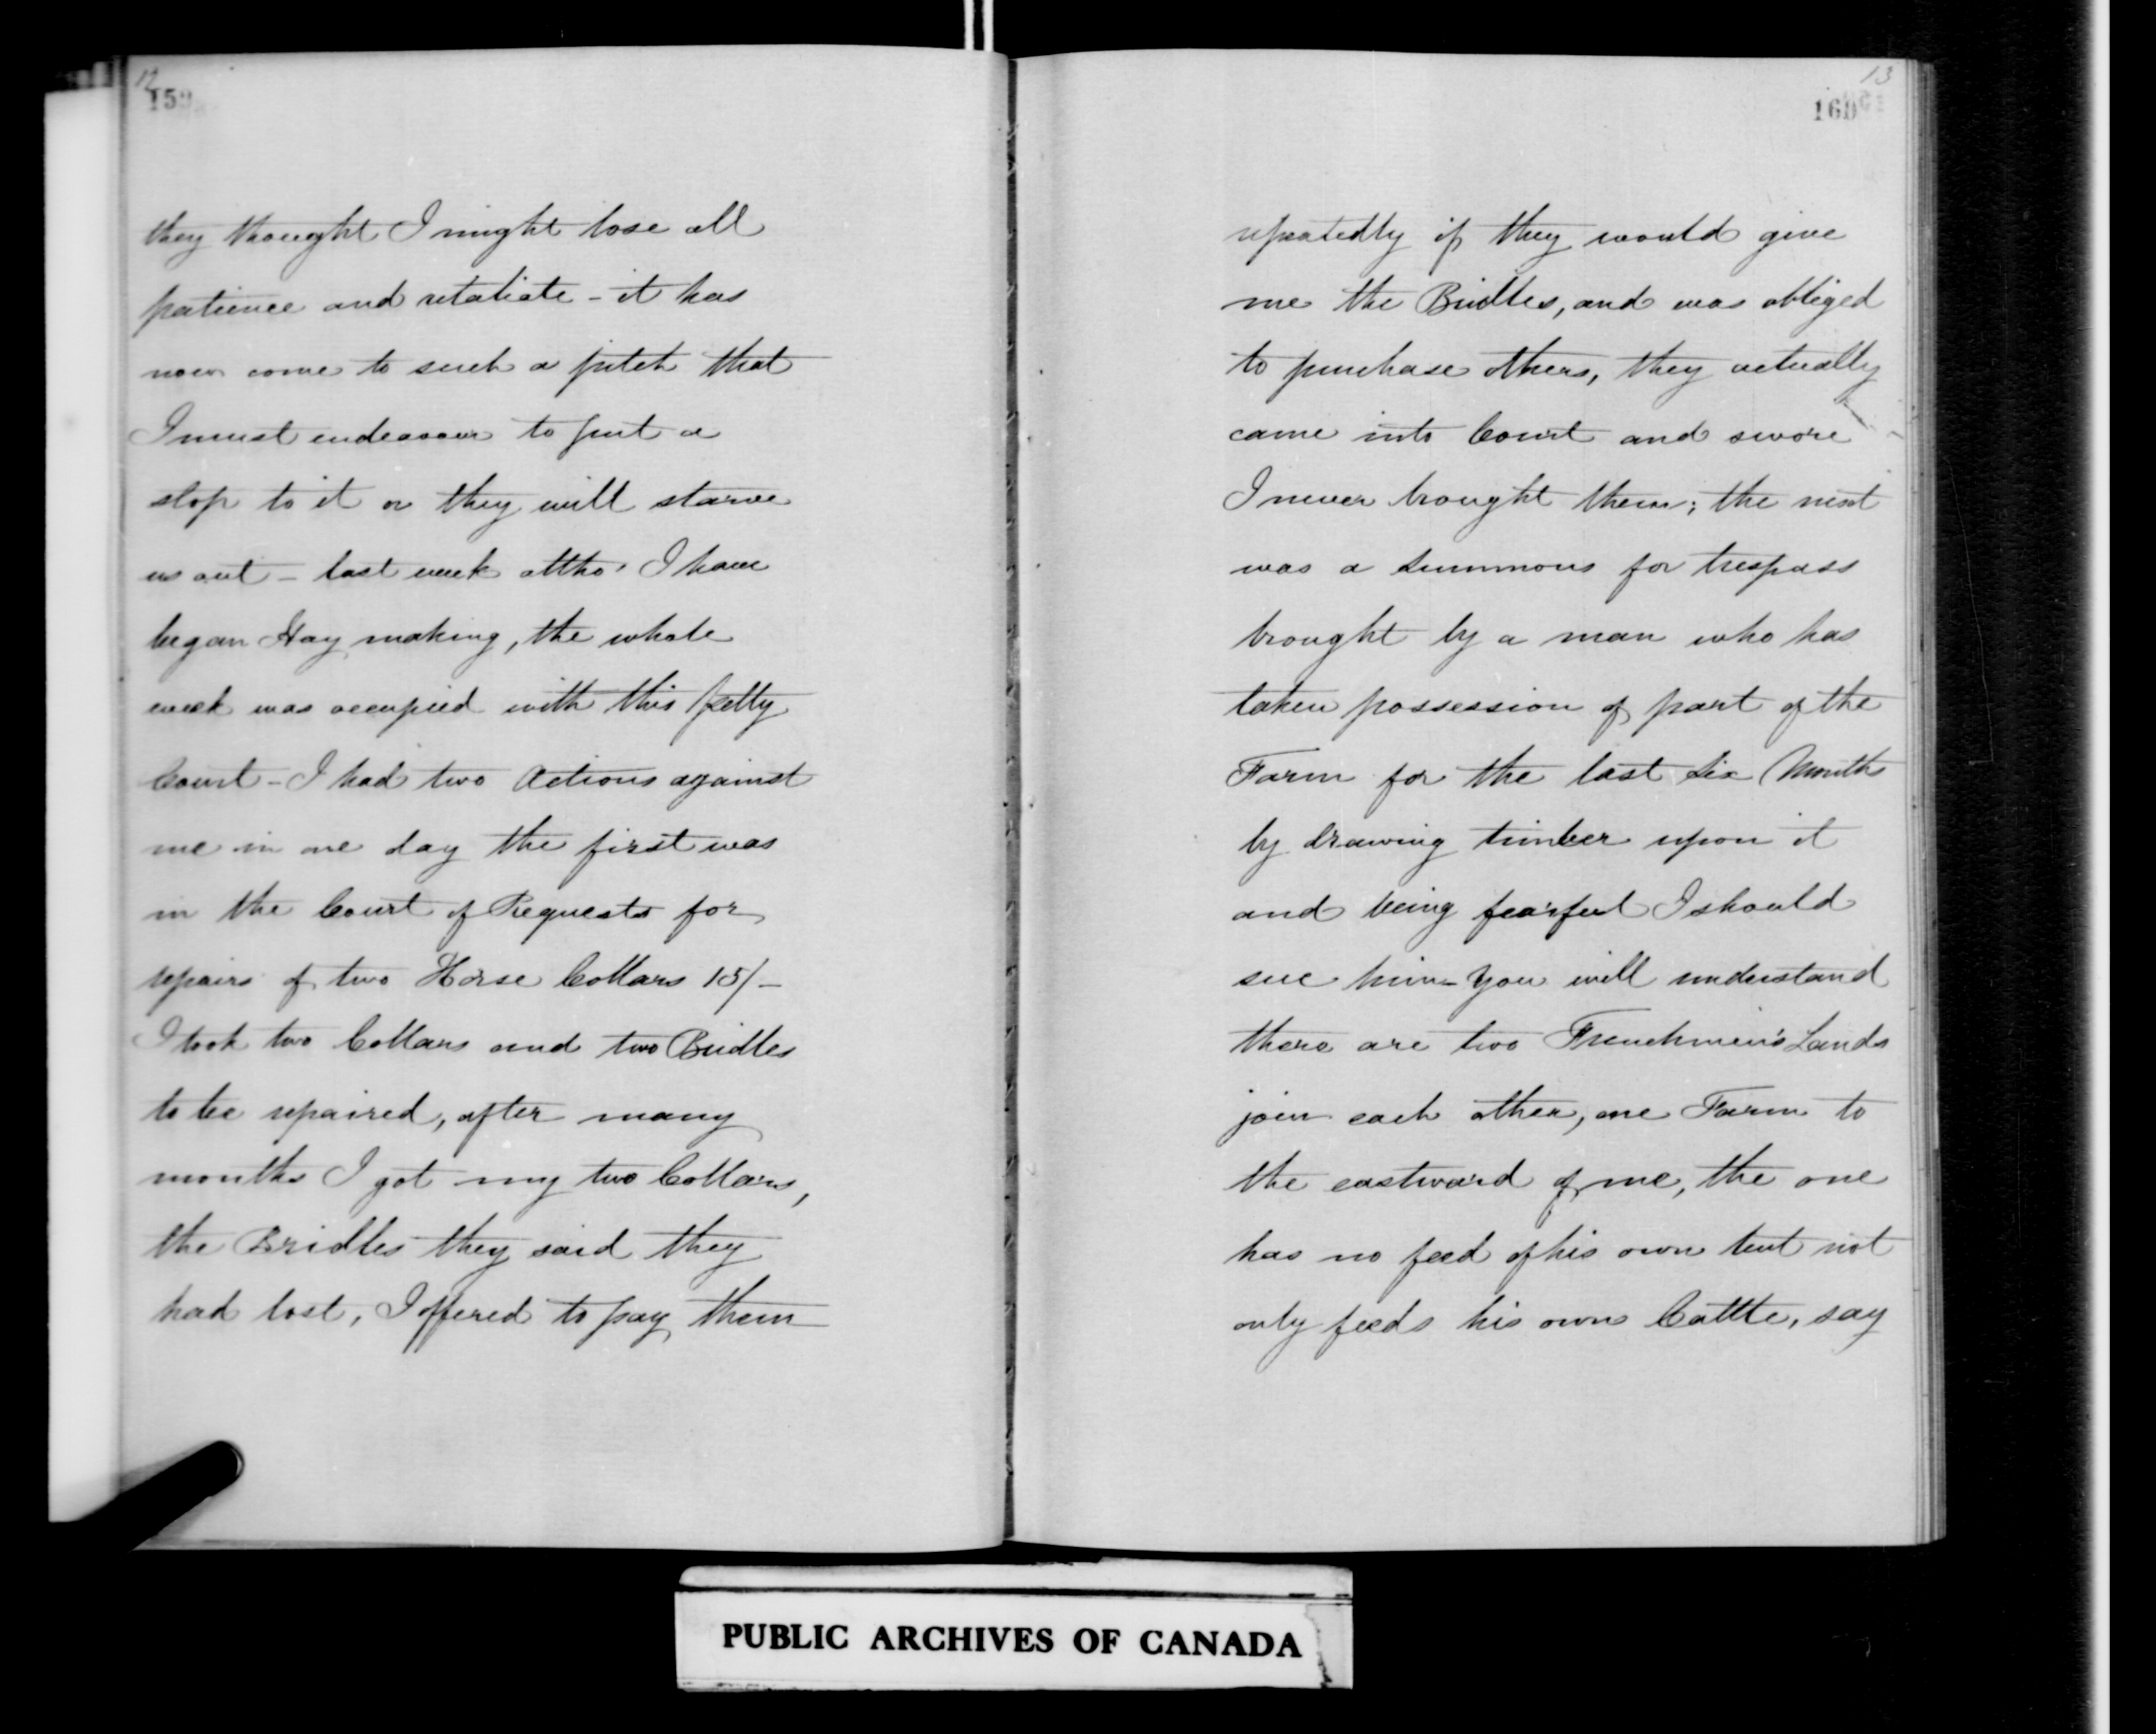 12
159
they thought I might lose all
patience and retaliate - it has
now come to such a pitch that
I must endeavour to put a
stop to it or they will starve
us out - last week altho' I have
began Hay making, the whole
week was occupied with this petty
Court - I had two Actions against
me in one day the first was
in the Court of Requests for
repairs of two Horse Collars 15/-
I took two Collars and two Bridles
to be repaired, after many
months I got my two Collars,
the Bridles they said they
had lost, I offered to pay them
13
160
repeatedly if they would give
me the Bridles, and was obliged
to purchase others, they actually
came into Court and swore
I never brought them; the next
was a Summons for trespass
brought by a man who has
taken possession of part of the
Farm for the last Six Months
by drawing timber upon it
and being fearful I should
sue him - You will understand
there are two Frenchmen's Lands
join each other, one Farm to
the eastward of me, the one
has no feed of his own but not
only feeds his own Cattle, say
PUBLIC ARCHIVES OF CANADA